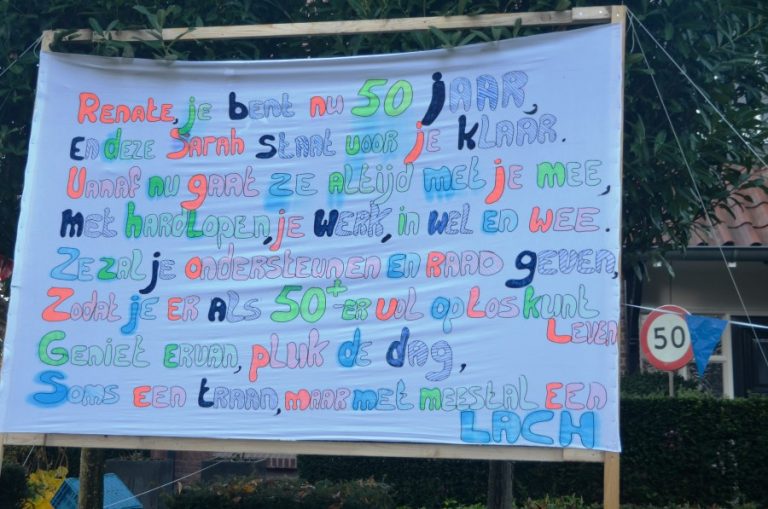 Renate, je bent nu 50 jaar,
En deze Sarah staat voor je klaar.
Vanaf nu gaat ze altijd met je mee,
Met hardlopen, je werk, in wel en wee.
Ze zal je ondersteunen en raad geven,
Zodat je er als 50+er vol op los kunt
Leven
Geniet ervan, pluk de dag,
Soms een traan, maar met meestal een
LACH
50